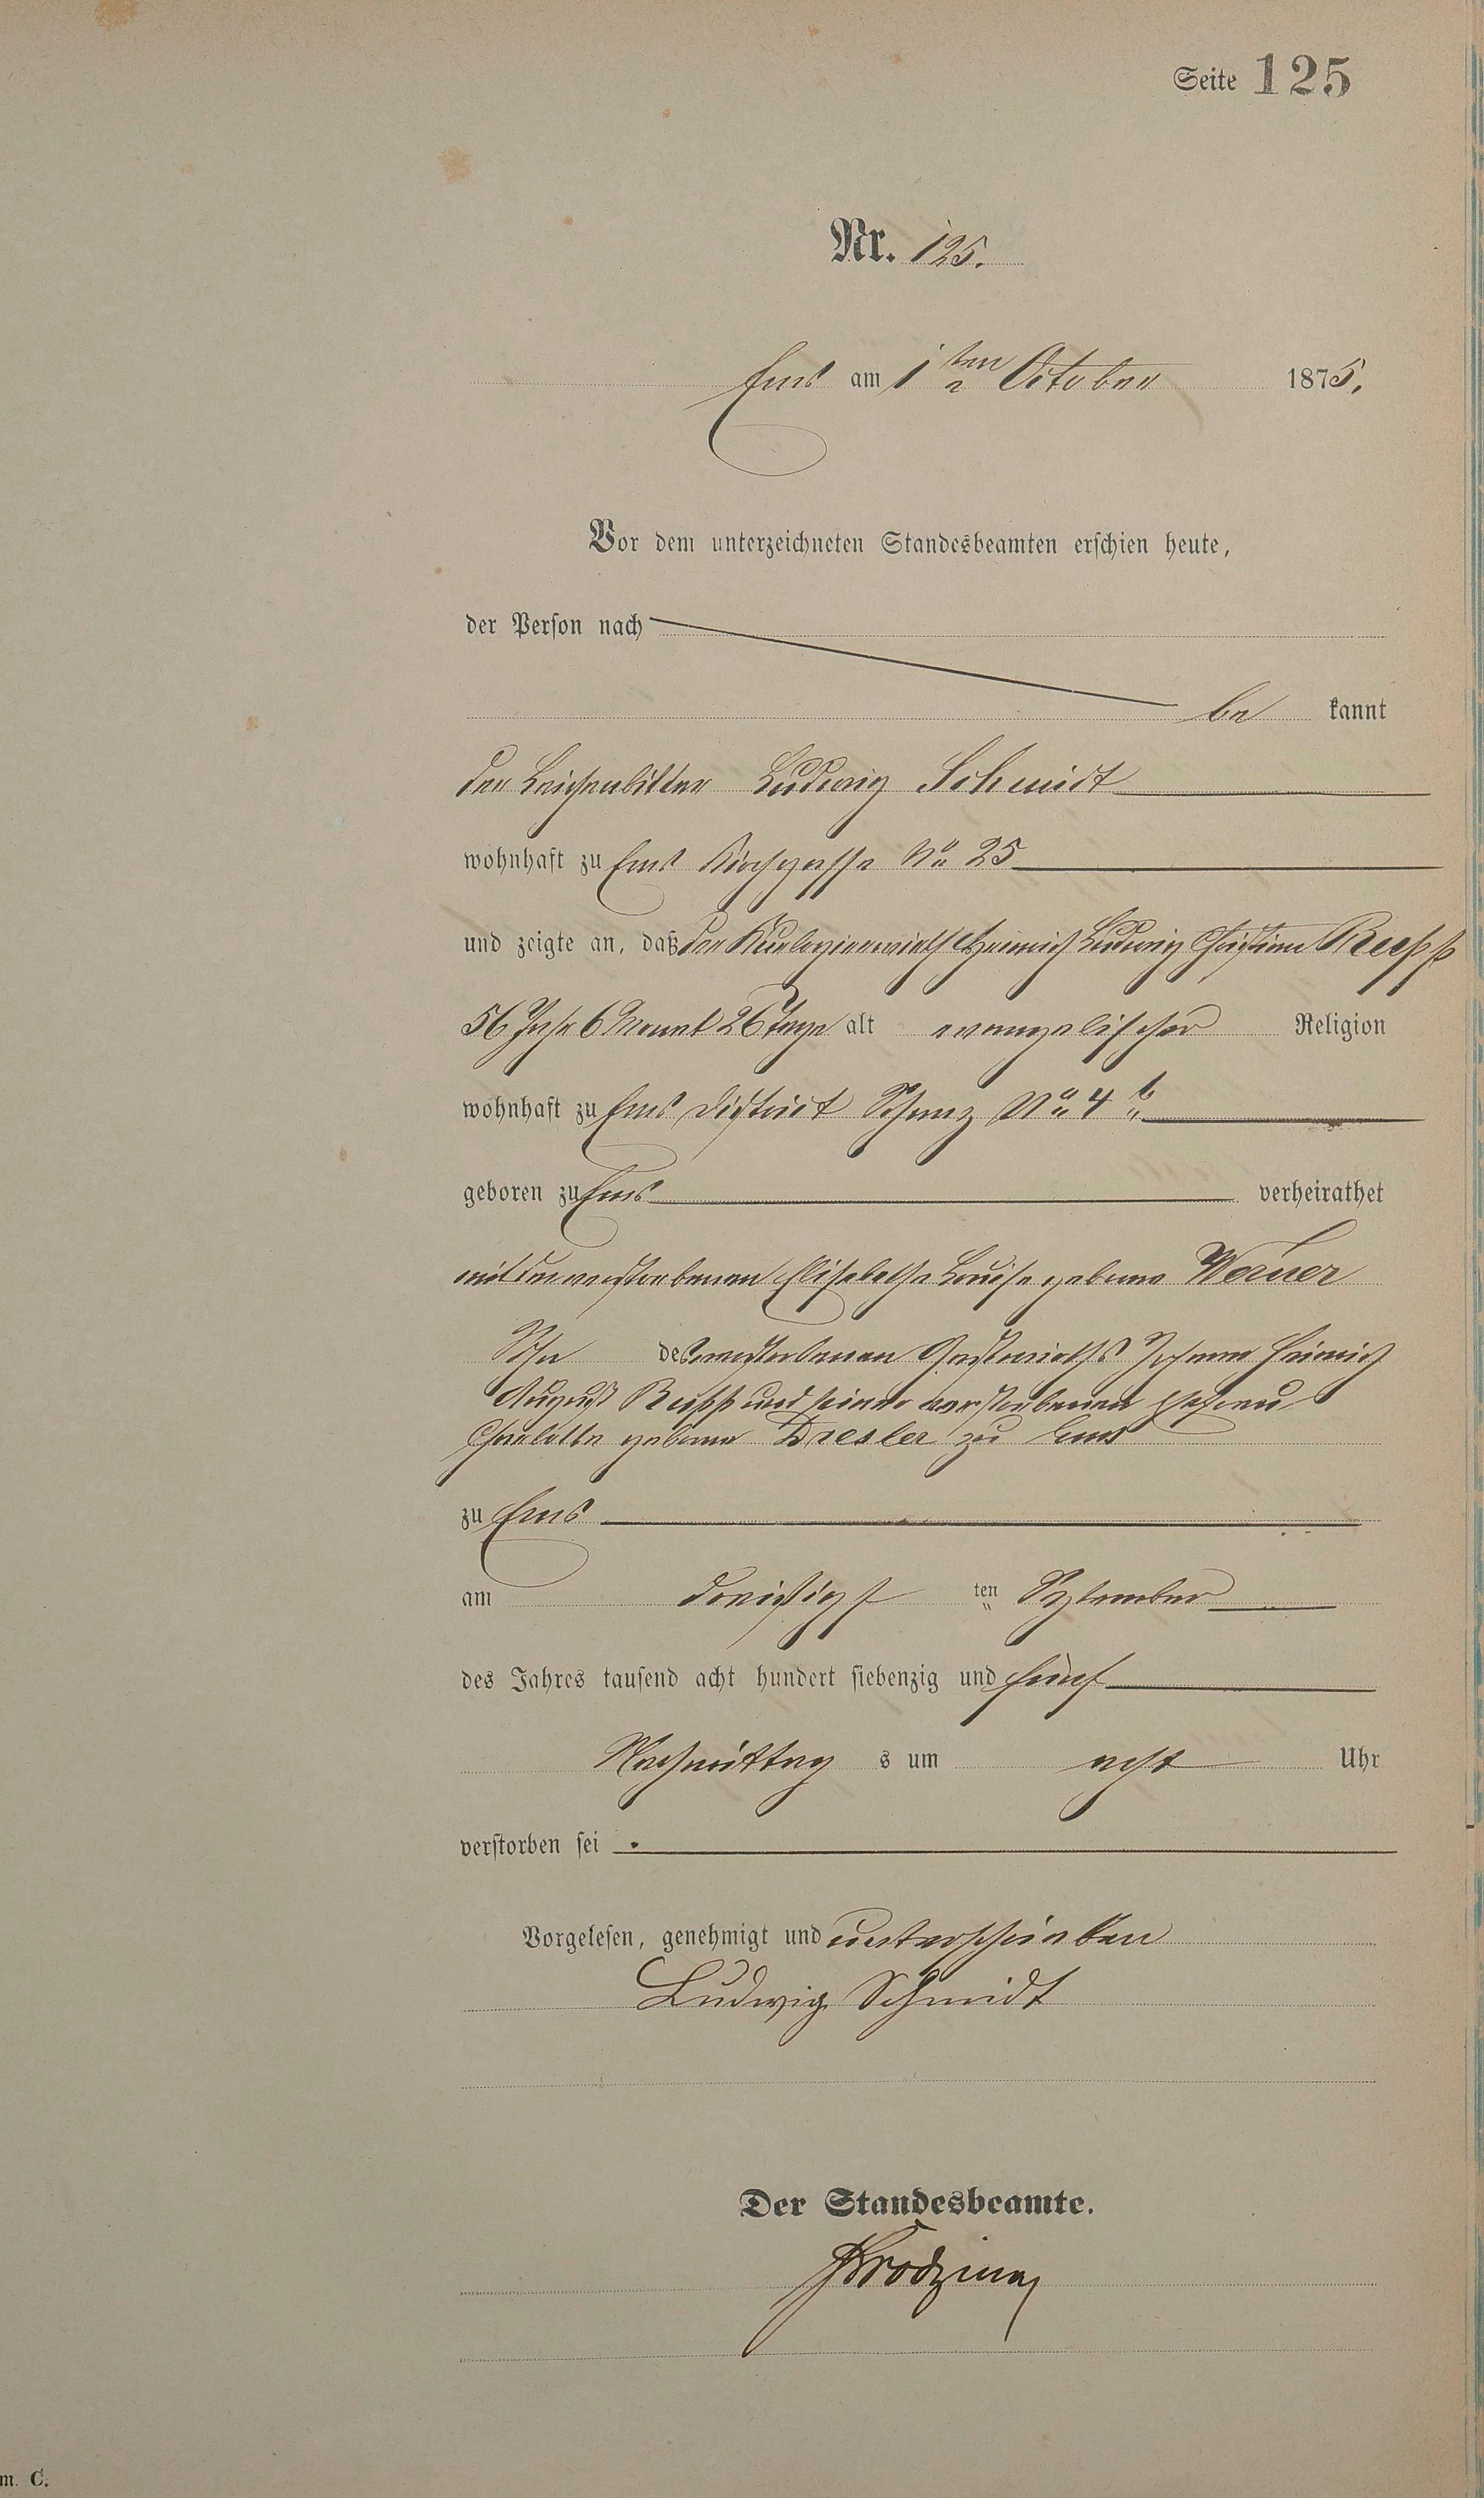 Seite 125
Nr. 125.
Ems am 1ten October 1875.
Vor dem unterzeichneten Standesbeamten erschien heute,
der Person nach
be kannt
der Leichenbitter Ludwig Schmidt
wohnhaft zu Ems Kirchgasse No 25
und zeigte an, daß der Kurlogierwirth Heinrich Ludwig Christian
56 Jahr 6 Monat 26 Tage alt evangelischer Religion
wohnhaft zu Ems District Schanz No 4 b
geboren zu Ems verheirathet
mit der verstorbenen Elisabethe Louise geborne Werner
Sohn des verstorbenen Gastwirths Johann Heinrich
August und seiner verstorbenen Ehefrau
Charlotte geborne Dresler zu Ems
zu Ems
am dreißigst ten September
des Jahres tausend acht hundert siebenzig und fünf
Nachmittag s um acht Uhr
verstorben sei .
Vorgelesen, genehmigt und unterschrieben
Ludwig Schmidt
Der Standesbeamte.
m. C.